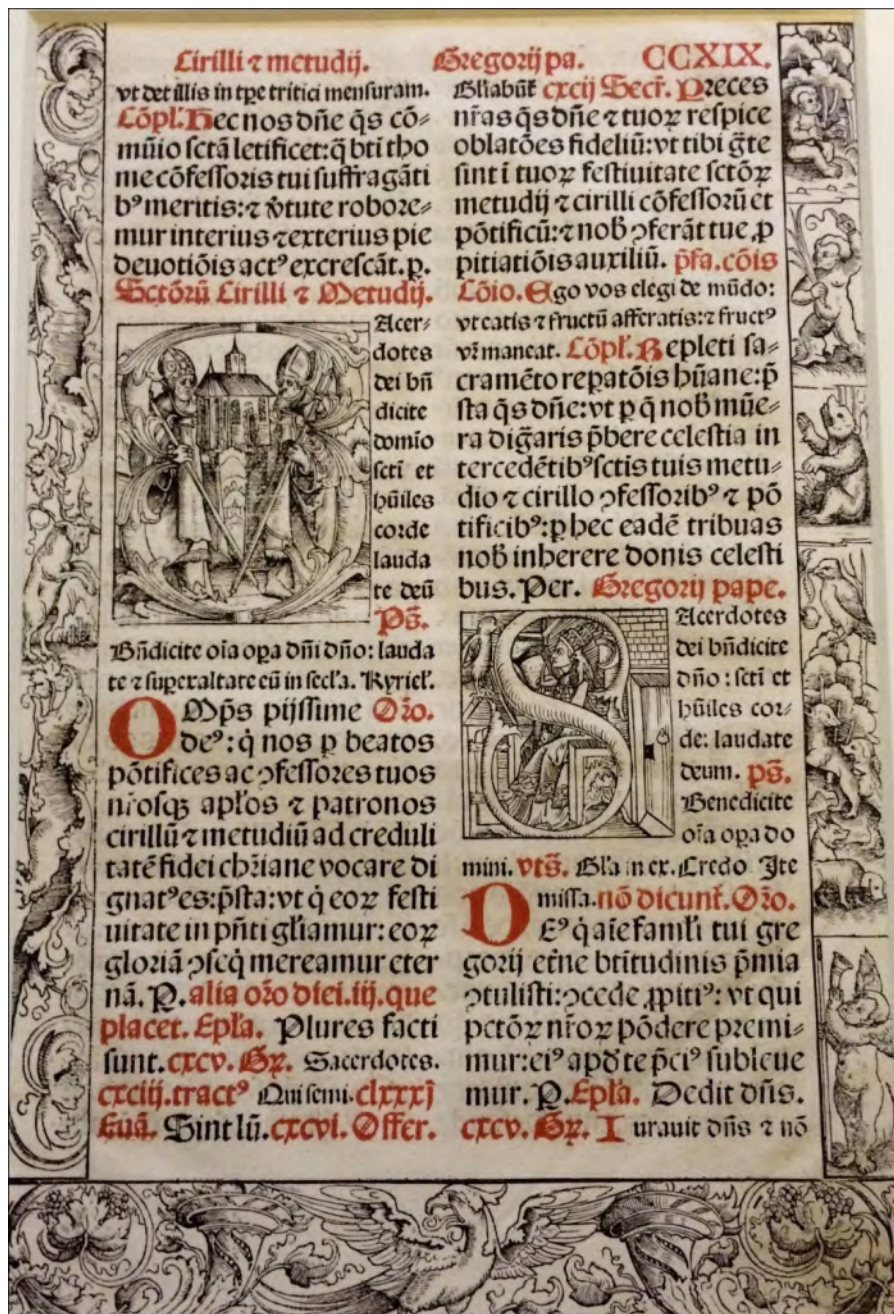 Cirilli ⁊ metudij. Gregorij pa. CCXIX.
vt det illis in tp̄e tritici mensuram.
Cōpl̄. Hec nos dn̄e q̄s cō⸗
mūio sctā letificet: q̄ btī tho
me cōfessoris tui suffragāti
bꝰ meritis: ⁊ v̄tute robore⸗
mur interius ⁊ exterius pie
deuotiōis actꝰ excrescāt. p.
Sctōrū Cirilli ⁊ Metudij.
Acer⸗
dotes
dei bn̄
dicite
domīo
sctī et
hūiles
corde
lauda
te deū
Ps̄.
Bn̄dicite oīa oꝑa dn̄i dn̄o: lauda
te ⁊ superaltate eū in secl̄a. Kyriel̄.
OMp̄s pijssime Or̄o.
deꝰ: q̇ nos ꝑ beatos
pōtifices ac ꝯfessores tuos
nr̄osqꝫ apl̄os ⁊ patronos
cirillū ⁊ metudiū ad creduli
tatē fidei chr̄iane vocare di
gnatꝰ es: p̄sta: vt q̇ eoꝝ festi
uitate in pn̄ti gl̄iamur: eoꝝ
gloriā ꝯseq̇ mereamur eter
nā. P. alia or̄o diei. iij. que
placet. Epl̄a. Plures facti
sunt. cxcv. Gꝝ. Sacerdotes.
cxciij. tractꝰ Qui semi. clxxxj
Euā. Sint lū. cxcvi. Offer.
Gl̄iabūt̄ cxcij Secr̄. Preces
nr̄as q̄s dn̄e ⁊ tuoꝝ respice
oblatōes fideliū: vt tibi gr̄te
sint ī tuoꝝ festiuitate sctōꝝ
metudij ⁊ cirilli cōfessorū et
pōtificū: ⁊ nob̄ ꝯferāt tue ꝓ
pitiatiōis auxiliū. p̄fa. cōis
Cōio. Ego vos elegi de mūdo:
vt eatis ⁊ fructū afferatis: ⁊ fructꝰ
vr̄ maneat. Cōpl̄. Repleti sa⸗
cramēto reꝑatōis hūane: p̄
sta q̄s dn̄e: vt ꝑ q̄ nob̄ mūe⸗
ra dig̅aris p̄bere celestia in
tercedētibꝰ sctis tuis metu⸗
dio ⁊ cirillo ꝯfessoribꝰ ⁊ pō
tificibꝰ: ꝑ hec eadē tribuas
nob̄ inherere donis celesti
bus. Per. Gregorij pape.
SAcerdotes
dei bn̄dicite
dn̄o: sctī et
hūiles cor⸗
de: laudate
deum. ps̄.
Benedicite
oīa oꝑa do
mini. vts̄. Gl̄a in ex. Credo Ite
missa. nō dicunt̄. Or̄o.
DEꝰ q̇ aīe faml̄i tui gre
gorij et̄ne btītudinis p̄mia
ꝯtulisti: ꝯcede ꝓpitiꝰ: vt qui
pctōꝝ nr̄oꝝ pōdere premi⸗
mur: eiꝰ apd̄ te p̄ciꝰ subleue
mur. P. Epl̄a. Dedit dn̄s.
cxcv. Gꝝ. Iurauit dn̄s ⁊ nō